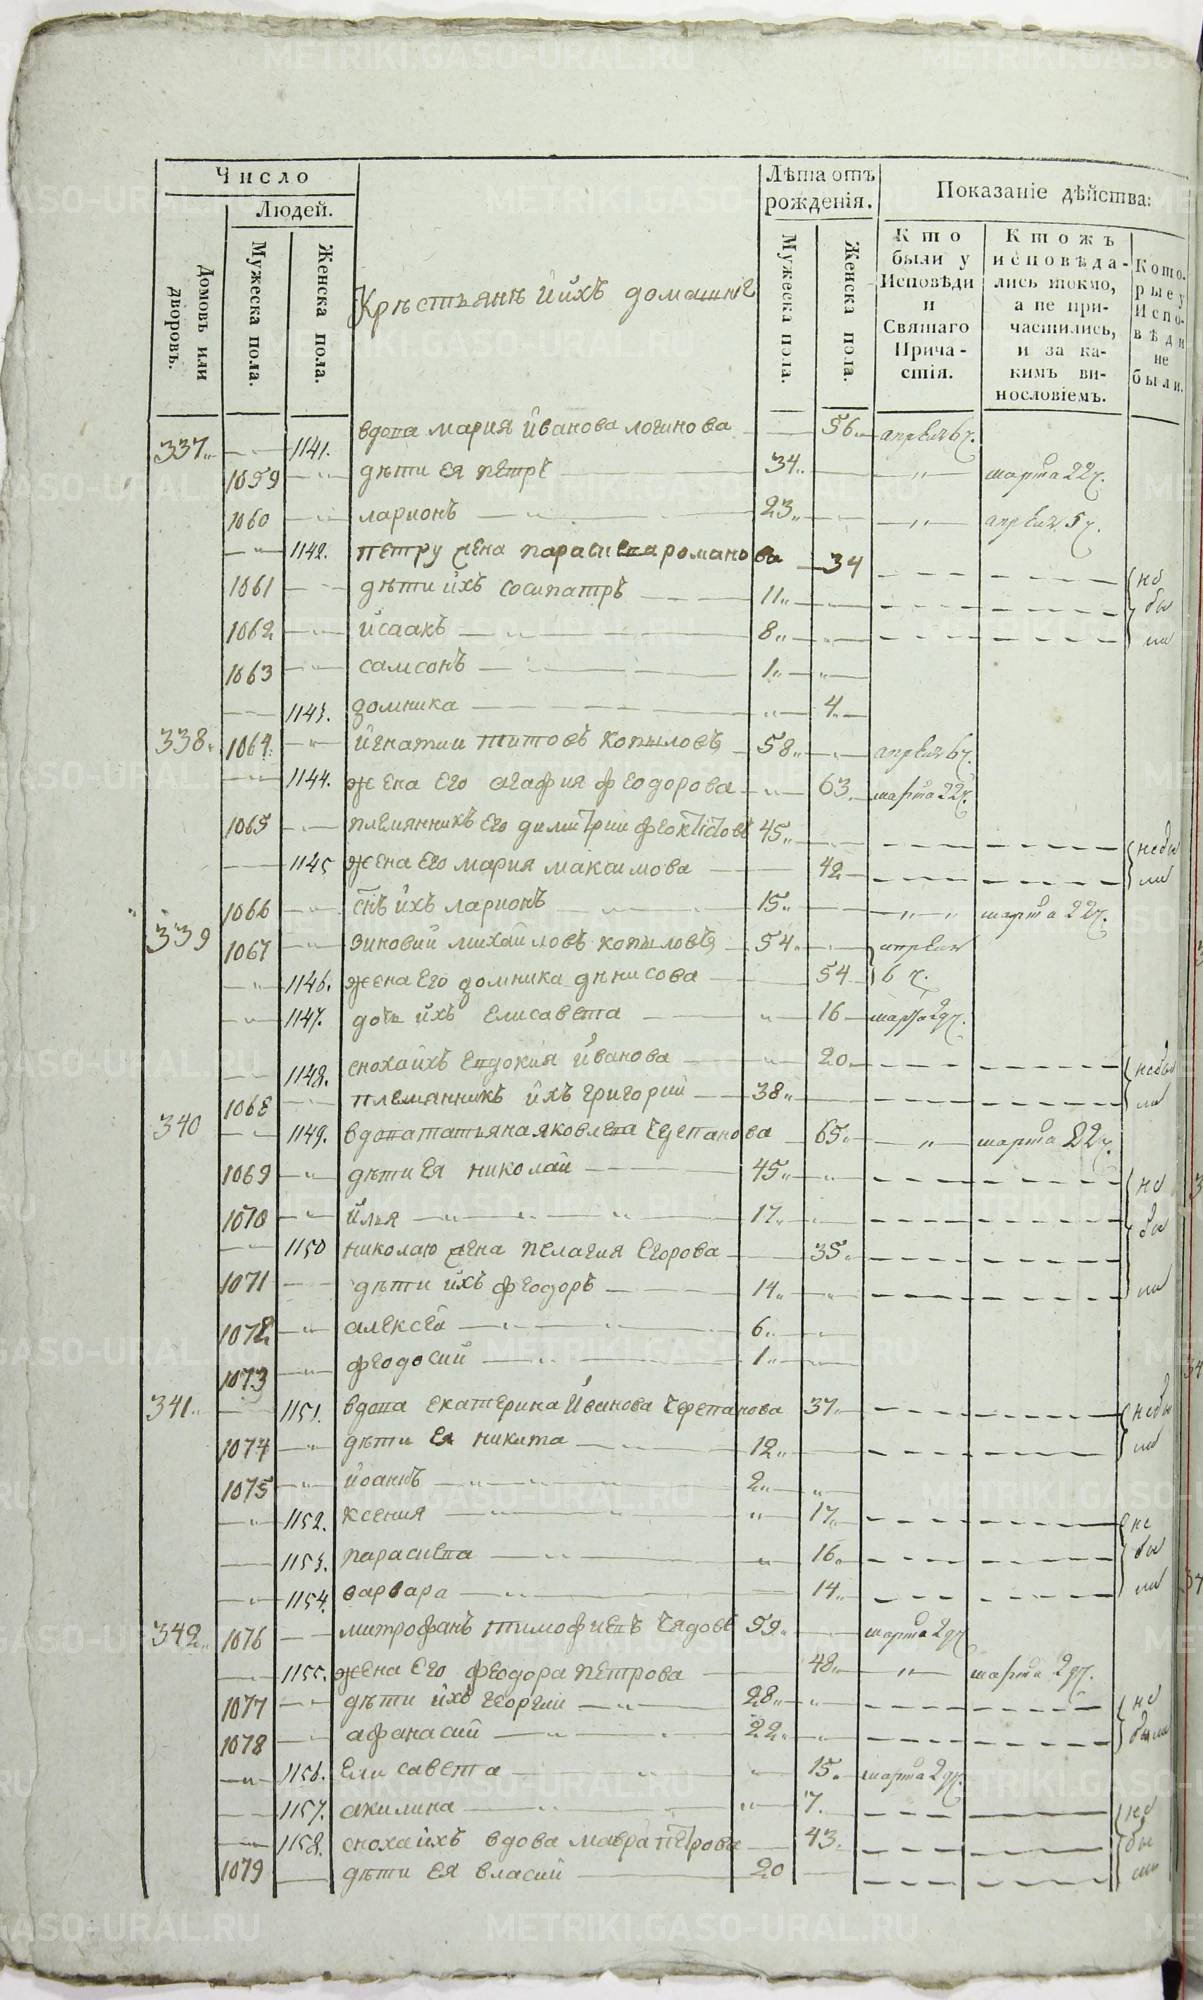 Число
Людей.
Домовъ или дворовъ.
Мужеска пола.
Женска пола.
Крѣстьянѣ и ихъ домашнiе
Лѣта отъ рожденія.
Мужеска пола.
Женска пола.
Показаніе дѣйства:
Кто были у Исповѣди и Святаго Причастія.
Ктожъ исповѣдались токмо, а не причастились, и за какимъ винословіемъ.
Которые у Исповѣди не были.
337 1141. вдова мария иванова логинова 56 апреля 6 ч.
1059 дѣти ея петръ 34 " марта 22 ч.
1060 ларионъ 23 " апреля 5 ч.
1142. петру жена параскева романова 34
1061 дѣти ихъ сосипатръ 11 не
1062 исаакъ 8 бы
1063 самсонъ 1 ли
1143. домника 4
338 1064 игнатии титовъ копыловъ 58 апреля 6 ч.
1144. жена его агафия феодорова 63 марта 22 ч.
1065 племянникъ его димитрии феоктистовъ 45 небы
1145 жена его мария максимова 42 ли
1066 снъ ихъ ларионъ 15 " " марта 22 ч.
339 1067 зиновий михайловъ копыловъ 54 апреля
1146. жена его домника дѣнисова 54 6 ч.
1147. дочь ихъ елисавета 16 марта 29 ч.
1148. сноха ихъ евдокия иванова 20 небы
1068 племянникъ ихъ григорий 38 ли
340 1149. вдова татьяна яковлева черепанова 65 " марта 22 ч.
1069 дѣти ея николай 45 не
1070 илья 17 бы
1150 николаю жена пелагия егорова 35
1071 дѣти ихъ феодоръ 14 ли
1072 алексей 6
1073 феодосий 1
341 1151. вдова екатерина иванова черепанова 37 небы
1074 дѣти ея никита 12 ли
1075 иоаннъ 2
1152. ксения 17 не
1153. параскева 16 бы
1154. варвара 14 ли
342 1076 митрофанъ тимофиевъ чядовъ 59 марта 29 ч.
1155. жена его феодора петрова 48 " марта 29 ч.
1077 дѣти ихъ георгии 28 не
1078 афанасий 22 были
1156. елисавета 15 марта 29 ч.
1157. акилина 7 не
1158. сноха ихъ вдова мавра петрова 43 бы
1079 дѣти ея власий 20 ли
METRIKI.GASO-URAL.RU